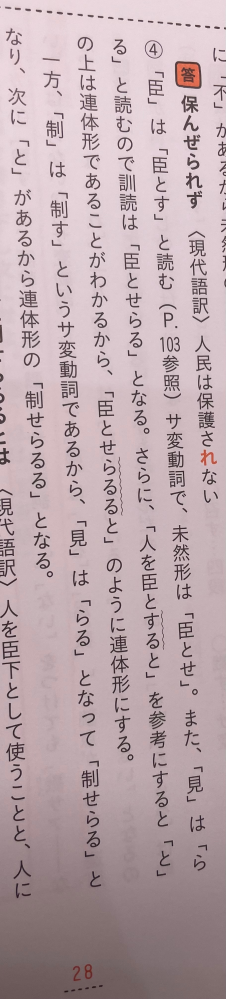 に「不」があるから未然形の
答 保んぜられず 〈現代語訳〉人民は保護されない
④「臣」は「臣とす」と読む（P.103参照）サ変動詞で、未然形は「臣とせ」。また、「見」は「ら
る」と読むので訓読は「臣とせらる」となる。さらに、「人を臣とすると」を参考にすると「と」
の上は連体形であることがわかるから、「臣とせらるると」のように連体形にする。
一方、「制」は「制す」というサ変動詞であるから、「見」は「らる」となって「制せらる」と
なり、次に「と」があるから連体形の「制せらるる」となる。
るとは 〈現代語訳〉人を臣下として使うことと、人に
28